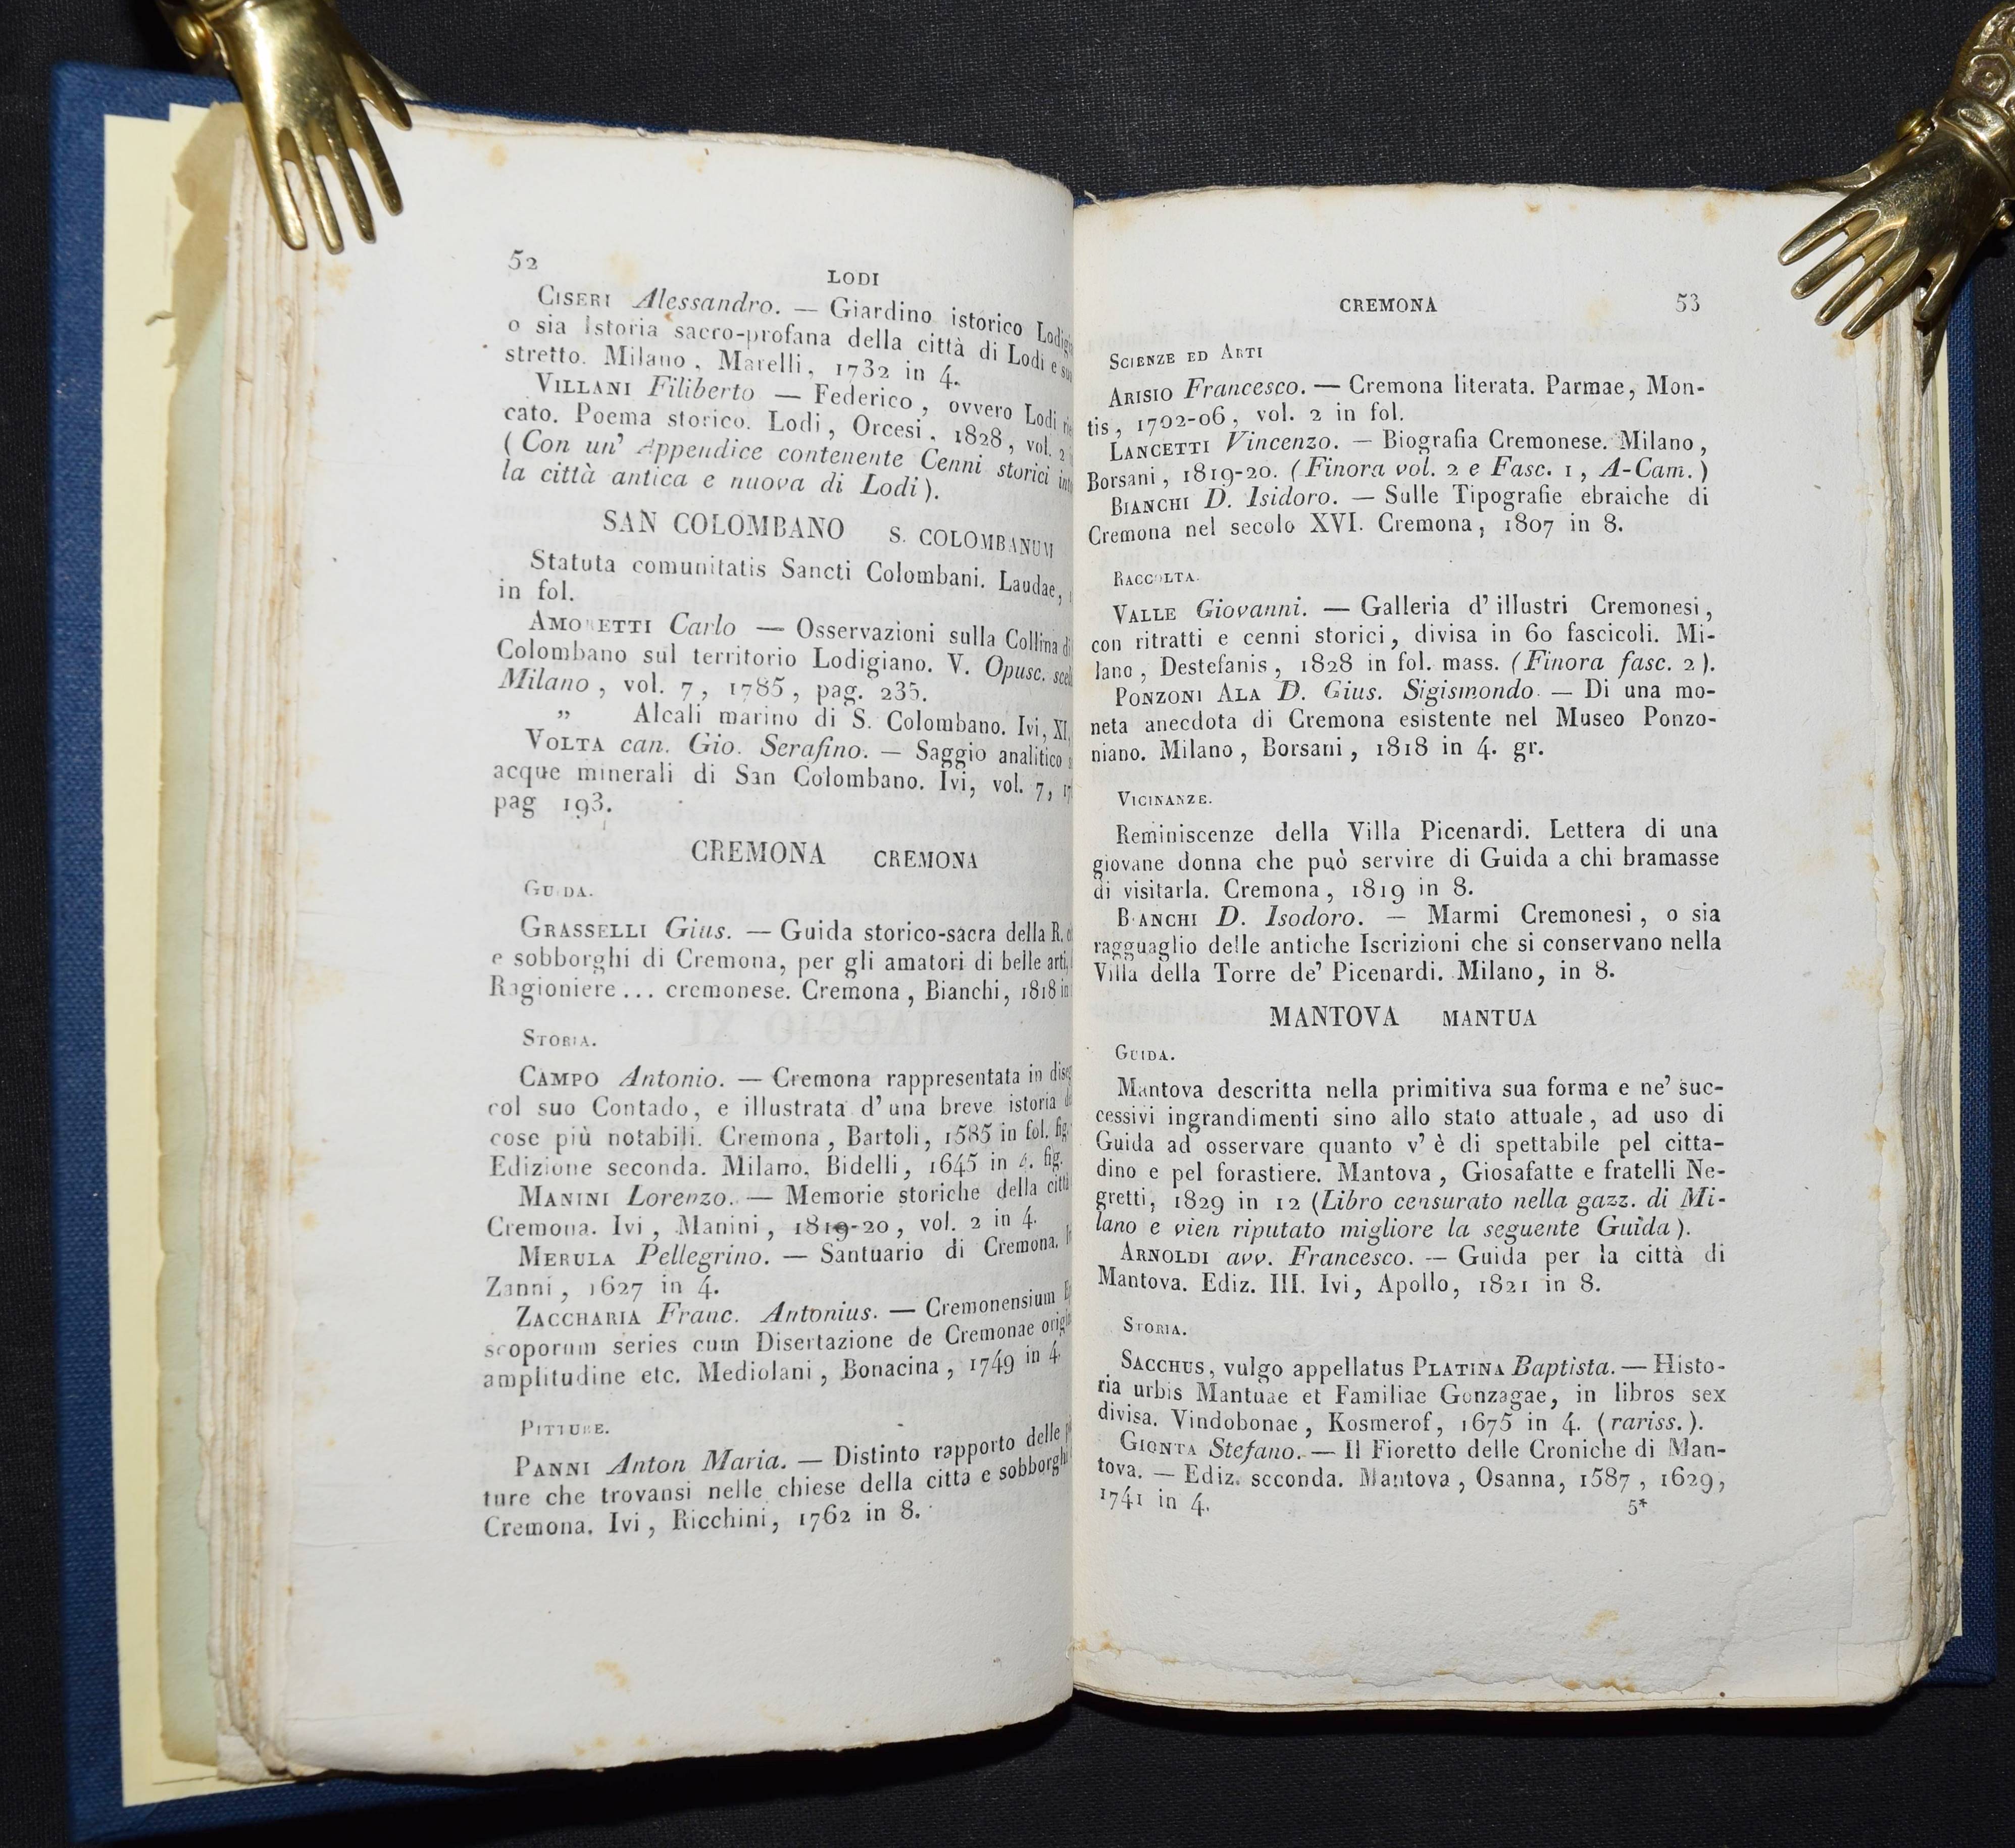 52
LODI
CISERI Alessandro. — Giardino istorico
o sia Istoria sacro-profana della città di Lodi e
stretto. Milano, Marelli, 1732 in 4.
VILLANI Filiberto — Federico, ovvero Lodi
cato. Poema storico. Lodi, Orcesi, 1828, vol. 2
(Con un' Appendice contenente Cenni storici
la città antica e nuova di Lodi).
SAN COLOMBANO S. COLOMBANUM
Statuta comunitatis Sancti Colombani. Laudae,
in fol.
AMORETTI Carlo — Osservazioni sulla Collina di
Colombano sul territorio Lodigiano. V. Opusc.
Milano, vol. 7, 1785, pag. 235.
„ Alcali marino di S. Colombano. Ivi, XI,
VOLTA can. Gio. Serafino. — Saggio analitico
acque minerali di San Colombano. Ivi, vol. 7,
pag 193.
CREMONA CREMONA
GUIDA.
GRASSELLI Gius. — Guida storico-sacra della R.
e sobborghi di Cremona, per gli amatori di belle arti,
Ragioniere... cremonese. Cremona, Bianchi, 1818 in
STORIA.
CAMPO Antonio. — Cremona rappresentata in
col suo Contado, e illustrata d'una breve istoria
cose più notabili. Cremona, Bartoli, 1585 in fol. fig.
Edizione seconda. Milano, Bidelli, 1645 in 4. fig.
MANINI Lorenzo. — Memorie storiche della città
Cremona. Ivi, Manini, 1819-20, vol. 2 in 4.
MERULA Pellegrino. — Santuario di Cremona.
Zanni, 1627 in 4.
ZACCHARIA Franc. Antonius. — Cremonensium
scoporum series cum Disertazione de Cremonae
amplitudine etc. Mediolani, Bonacina, 1749 in 4.
PITTURE.
PANNI Anton Maria. — Distinto rapporto delle
ture che trovansi nelle chiese della città e sobborghi
Cremona. Ivi, Ricchini, 1762 in 8.
CREMONA 53
SCIENZE ED ARTI
ARISIO Francesco. — Cremona literata. Parmae, Mon-
tis, 1702-06, vol. 2 in fol.
LANCETTI Vincenzo. — Biografia Cremonese. Milano,
Borsani, 1819-20. (Finora vol. 2 e Fasc. 1, A-Cam.)
BIANCHI D. Isidoro. — Sulle Tipografie ebraiche di
Cremona nel secolo XVI. Cremona, 1807 in 8.
RACCOLTA.
VALLE Giovanni. — Galleria d'illustri Cremonesi,
con ritratti e cenni storici, divisa in 60 fascicoli. Mi-
lano, Destefanis, 1828 in fol. mass. (Finora fasc. 2).
PONZONI ALA D. Gius. Sigismondo. — Di una mo-
neta anecdota di Cremona esistente nel Museo Ponzo-
niano. Milano, Borsani, 1818 in 4. gr.
VICINANZE.
Reminiscenze della Villa Picenardi. Lettera di una
giovane donna che può servire di Guida a chi bramasse
di visitarla. Cremona, 1819 in 8.
BIANCHI D. Isodoro. — Marmi Cremonesi, o sia
ragguaglio delle antiche Iscrizioni che si conservano nella
Villa della Torre de' Picenardi. Milano, in 8.
MANTOVA MANTUA
GUIDA.
Mantova descritta nella primitiva sua forma e ne' suc-
cessivi ingrandimenti sino allo stato attuale, ad uso di
Guida ad osservare quanto v'è di spettabile pel citta-
dino e pel forastiere. Mantova, Giosafatte e fratelli Ne-
gretti, 1829 in 12 (Libro censurato nella gazz. di Mi-
lano e vien riputato migliore la seguente Guida).
ARNOLDI avv. Francesco. — Guida per la città di
Mantova. Ediz. III. Ivi, Apollo, 1821 in 8.
STORIA.
SACCHUS, vulgo appellatus PLATINA Baptista. — Histo-
ria urbis Mantuae et Familiae Gonzagae, in libros sex
divisa. Vindobonae, Kosmerof, 1675 in 4. (rariss.).
GIONTA Stefano. — Il Fioretto delle Croniche di Man-
tova. — Ediz. seconda. Mantova, Osanna, 1587, 1629,
1741 in 4.
5*